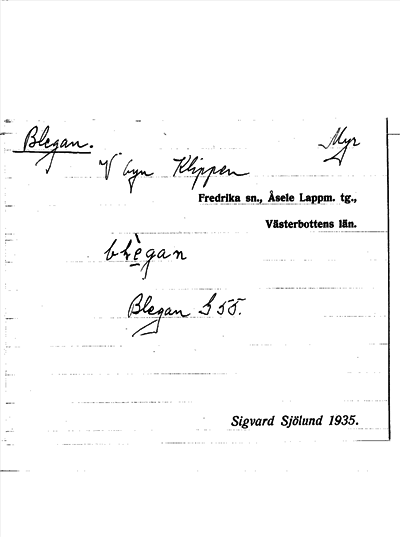 Blegan. Myr
V byn Klippen
Fredrika sn., Åsele Lappm. tg.,
Västerbottens län.
Blegan S 55.
Sigvard Sjölund 1935.